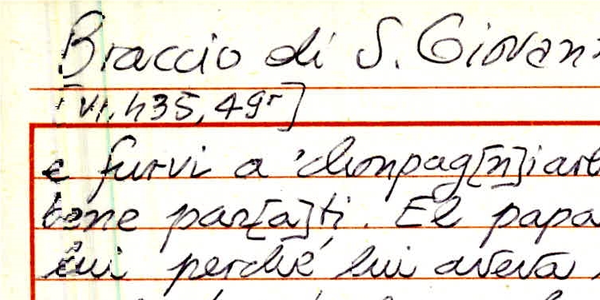 Braccio di S. Giovan
[VI, h35, 49r]
e furvi a 'chonpag[n]iar
bene par[a]ti. El papa
lui perché lui aveva